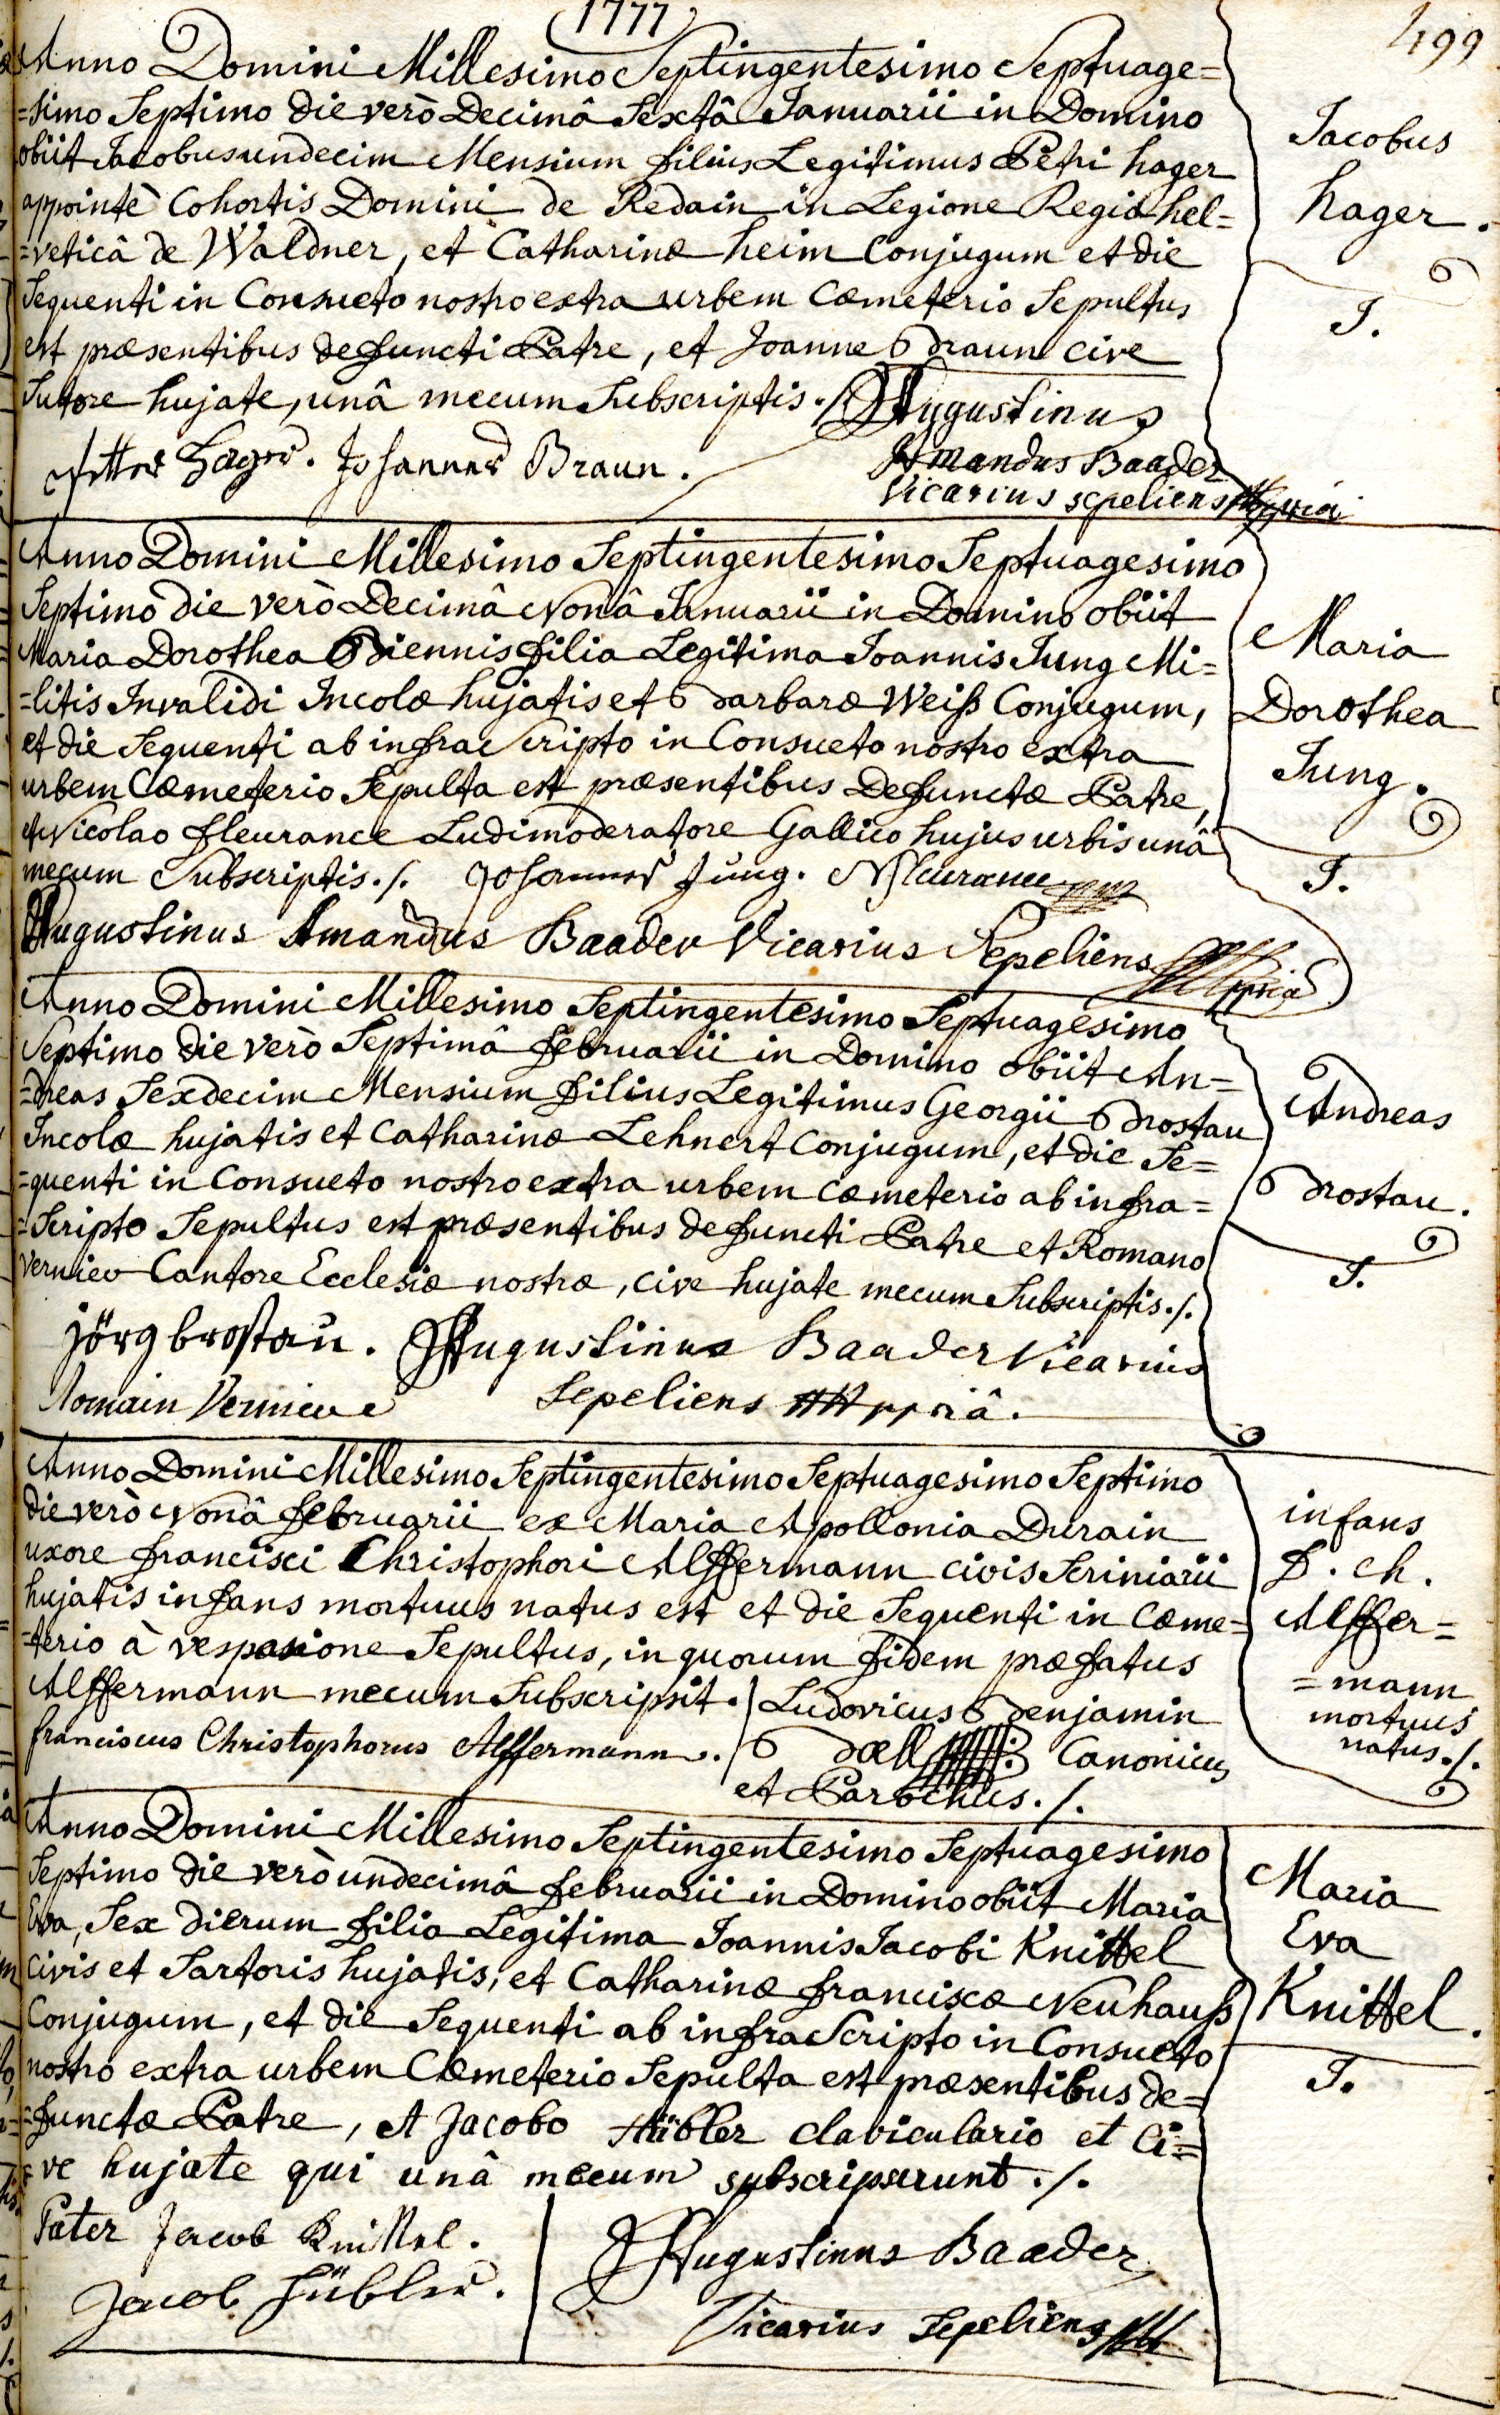 1777
499
Anno Domini Millesimo Septingentesimo Septuage=
=simo Septimo die verò Decimâ Sextâ Januarii in Domino
obiit Jacobus undecim Mensium filius Legitimus Petri hager
appointé Cohortis Domini de Redain in Legione Regia hel=
=veticâ de Waldner, et Catharinæ heim Conjugum et die
Sequenti in Consueto nostro extra urbem Cæmeterio Sepultus
est præsentibus defuncti Patre, et Joanne Braun cive
Sutore hujate, unâ mecum Subscriptis ./.
Jacobus
hager.
S.
Augustinus
Amandus Baader
Vicarius sepeliens
Petter Hager. Johannes Braun.
Anno Domini Millesimo Septingentesimo Septuagesimo
Septimo die verò Decimâ Nonâ Januarii in Domino obiit
Maria Dorothea Biennis filia Legitima Joannis Jung Mi=
=litis Invalidi Incolæ hujatis et Barbaræ Weiß Conjugum,
et die Sequenti ab infra Scripto in Consueto nostro extra
urbem Cæmeterio Sepulta est præsentibus Defunctæ Patre,
et Nicolao fleurance Ludimoderatore Gallico hujus urbis unâ
mecum Subscriptis ./. Johannes Jung. N fleurance
Augustinus Amandus Baader Vicarius Sepeliens
Maria
Dorothea
Jung.
S.
Anno Domini Millesimo Septingentesimo Septuagesimo
Septimo die verò Septimâ februarii in Domino obiit An=
=dreas Sexdecim Mensium filius Legitimus Georgii Brostau
Incolæ hujatis et Catharinæ Lehnert Conjugum, et die Se=
=quenti in Consueto nostro extra urbem Cæmeterio ab infra=
=Scripto Sepultus est præsentibus defuncti Patre et Romano
Vernier Cantore Ecclesiæ nostræ, cive hujate mecum Subscriptis ./.
jörg brostau. Augustinus Baader Vicarius
Romain Vernier Sepeliens
Andreas
Brostau.
S.
Anno Domini Millesimo Septingentesimo Septuagesimo Septimo
die verò Nonâ februarii ex Maria Apollonia Durain
uxore francisci Christophori Alffermann civis Scriniarii
hujatis infans mortuus natus est et die Sequenti in Cæme=
=terio à vespasione Sepultus, in quorum fidem præfatus
Alffermann mecum Subscripsit. Ludovicus Benjamin
franciscus Christophorus Alffermann. Bœll Canonicus
et Parochus ./.
infans
F. Ch.
Alffer=
=mann
mortuus
natus ./.
Anno Domini Millesimo Septingentesimo Septuagesimo
Septimo die verò undecimâ februarii in Domino obiit Maria
Eva, Sex dierum filia Legitima Joannis Jacobi Knittel
Civis et Sartoris hujatis, et Catharinæ franciscæ Neuhauß
Conjugum, et die Sequenti ab infra Scripto in Consueto
nostro extra urbem Cæmeterio Sepulta est præsentibus de=
=functæ Patre, et Jacobo Hübler claviculario et Ci=
=ve hujate qui unâ mecum subscripserunt ./.
Maria
Eva
Knittel.
S.
Pater Jacob Knittel.
Jacob Hübler.
Augustinus Baader
Vicarius Sepeliens